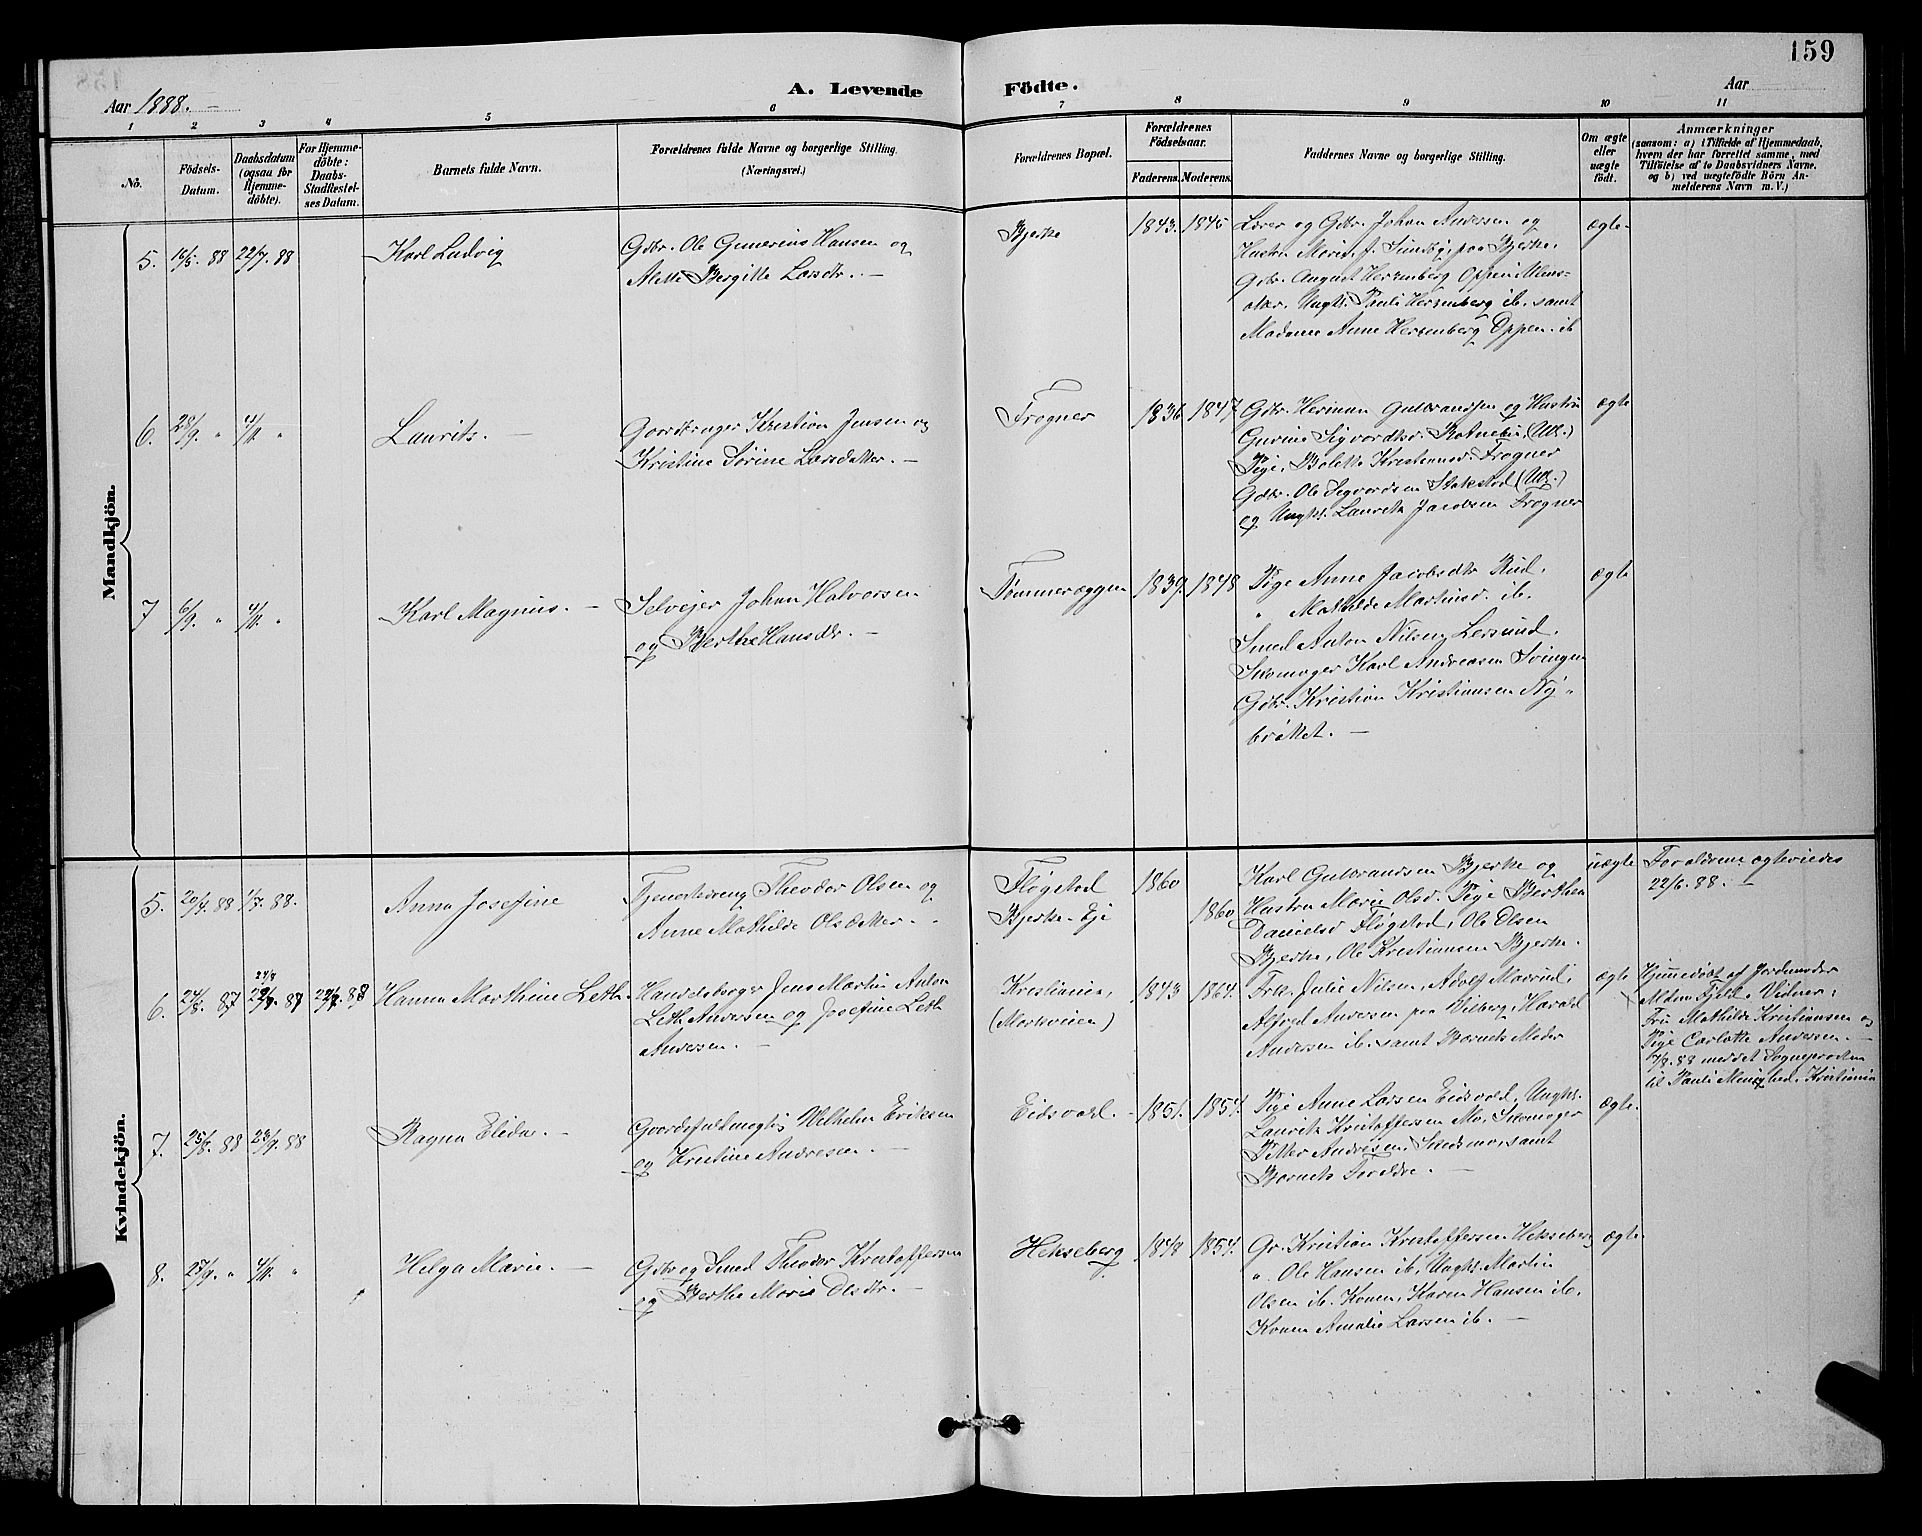 159
Aar 1888. –
A. Levende Födte.
Aar
1 2 3 4 5 6 7 8 9 10 11
No.
Födsels-
Datum.
Daabsdatum
(ogsaa for
Hjemme-
döbte).
For Hjemme-
döbte:
Daabs-
Stadfæstel-
ses Datum.
Barnets fulde Navn.
Forældrenes fulde Navne og borgerlige Stilling.
(Næringsvei.)
Forældrenes Bopæl.
Forældrenes
Födselsaar.
Faderens. Moderens.
Faddernes Navne og borgerlige Stilling.
Om ægte
eller
uægte
födt.
Anmærkninger
(saasom: a) i Tilfælde af Hjemmedaab,
hvem der har forrettet samme, med
Tilföielse af to Daabsvidners Navne.
og b) ved uægtefödte Börn An-
melderens Navn m. V.)
Mandkjön.
5. 16/5. 88 22/7. 88
Karl Ludvig
Gdbr. Ole Gunerius Hansen og
Mette Bergitte Larsdtr. –
Bjerke
1843. 1845
Lærer og Gdbr. Johan Andersen og
Hustru Marie, f. Sundby, paa Bjerke,
Gdbr. August Herzenberg Oppen
Ungk. Pauli Herzenberg ib. samt
Madame Anne Herzenberg Oppen. ib
ægte.
6. 28/9. " 4/11. "
Laurits. –
Gaardbruger Kristian Jensen og
Kristine Sørine Larsdatter. –
Frogner
1836 1847
Gdbr. Herman Gulbrandsen og Hustru
Gurine Sigvordtsdr. (Ull.)
Pige, Bolette Kristiansd. Frogner
Gdbr. Ole Sigvordsen (Ull.)
og Ungk. Laurits Jacobsen Frogner
ægte
7 6/9. " 4/11. "
Karl Magnus. –
Selvejer Johan Halvorsen
og Berthe Hansdtr. –
Tømmeræggen
1839. 1848
Pige Anne Jacobsdtr Rud,
" Mathilde Martinsd. ib.
Smed Anton Nilsen, Lersund,
Skomager Karl Andreasen Svingen
Gdbr. Kristian Kristiansen Ny-
bråtet. –
ægte
Kvindekjön.
5. 20/4. 88 1/7. 88.
Anna Josefine
Tjenestedreng Theodor Olsen og
Anne Mathilde Olsdatter. –
Fløgstad
Bjerke-Eje
1860
1860
Karl Gulbrandsen Bjerke og
Hustru Marie Olsd. Pige Berthea
Danielsd Fløgstad, Ole Olsen
Bjerke, Ole Kristiansen Bjerke.
uægte
Forældrene ægteviedes
22/6. 88. –
6. 24/8. 87
Hanna Marthine Leth.
Handelsborger Jens Martin Anton
Leth Andersen og Josefine Leth
Andersen. –
Kristiania,
(Markveien)
1843 1864.
Frk. Julie Nilsen, Adolf Maarud,
Alfred Andersen paa Vilberg, Harald
Andersen ib. samt Barnets Moder
ægte
Hjemmedøbt af Jordmoder
Fjeld. Vidner:
Fru Mathilde Kristiansen og
Pige Carlotte Andersen. –
7/9. 88 meddelt Sognepresten
til Pauli Menighed, Kristiania
7. 25/8. 88 23/9. 88
Ragna Elida. –
Gaardsfuldmægtig Wilhelm Eriksen
og Kristine Andresen. –
Eidsvold. –
1851. 1857.
Pige Anne Larsen Eidsvold, Ungk.
Laurits Kristoffersen Mo, Skomager
Petter Andresen, Smedsmo, samt
Barnets Forældre. –
ægte.
8. 27/9. " 4/11. "
Helga Marie. –
Gdbr og Smed Theodor Kristoffersen
og Berthe Marie Olsdtr. –
Hekseberg
1848 1857.
Gr. Kristian Kristoffersen Hekseberg
" Ole Hansen ib, Ungk. Martin
Olsen ib. Konen, Karen Hansen ib,
Konen Amalie Larsen ib. –
ægte.